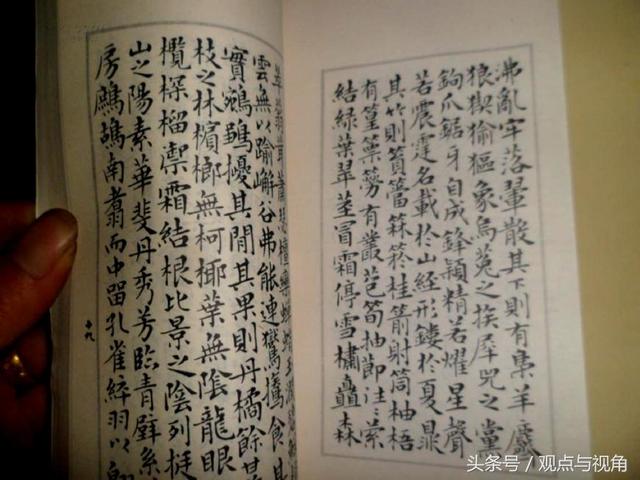 沸亂牢落翬散其下則有梟羊麡
狼猰貐貙象烏菟之族犀兕之黨
鉤爪鋸牙自成鋒穎精若燿星聲
若震霆名載於山經形鏤於夏鼎
其竹則篔簹箖箊桂箭射筒柚梧
有篁篥簩有叢苞筍抽節注注縈
結綠葉翠莖冒霜停雪橚矗森
萃蓊茸蕭瑟檀欒
雲無以踰嶰谷弗能連鸑鷟食其
實鵷鶵擾其間其果則丹橘餘甘
枝之林檳榔無柯椰葉無陰龍眼
欖棎榴禦霜結根比景之陰列挺
山之陽素華斐丹秀芳臨青壁系
房鷓鴣南翥而中留孔雀綷羽以翱
十九
头条号／观点与视角